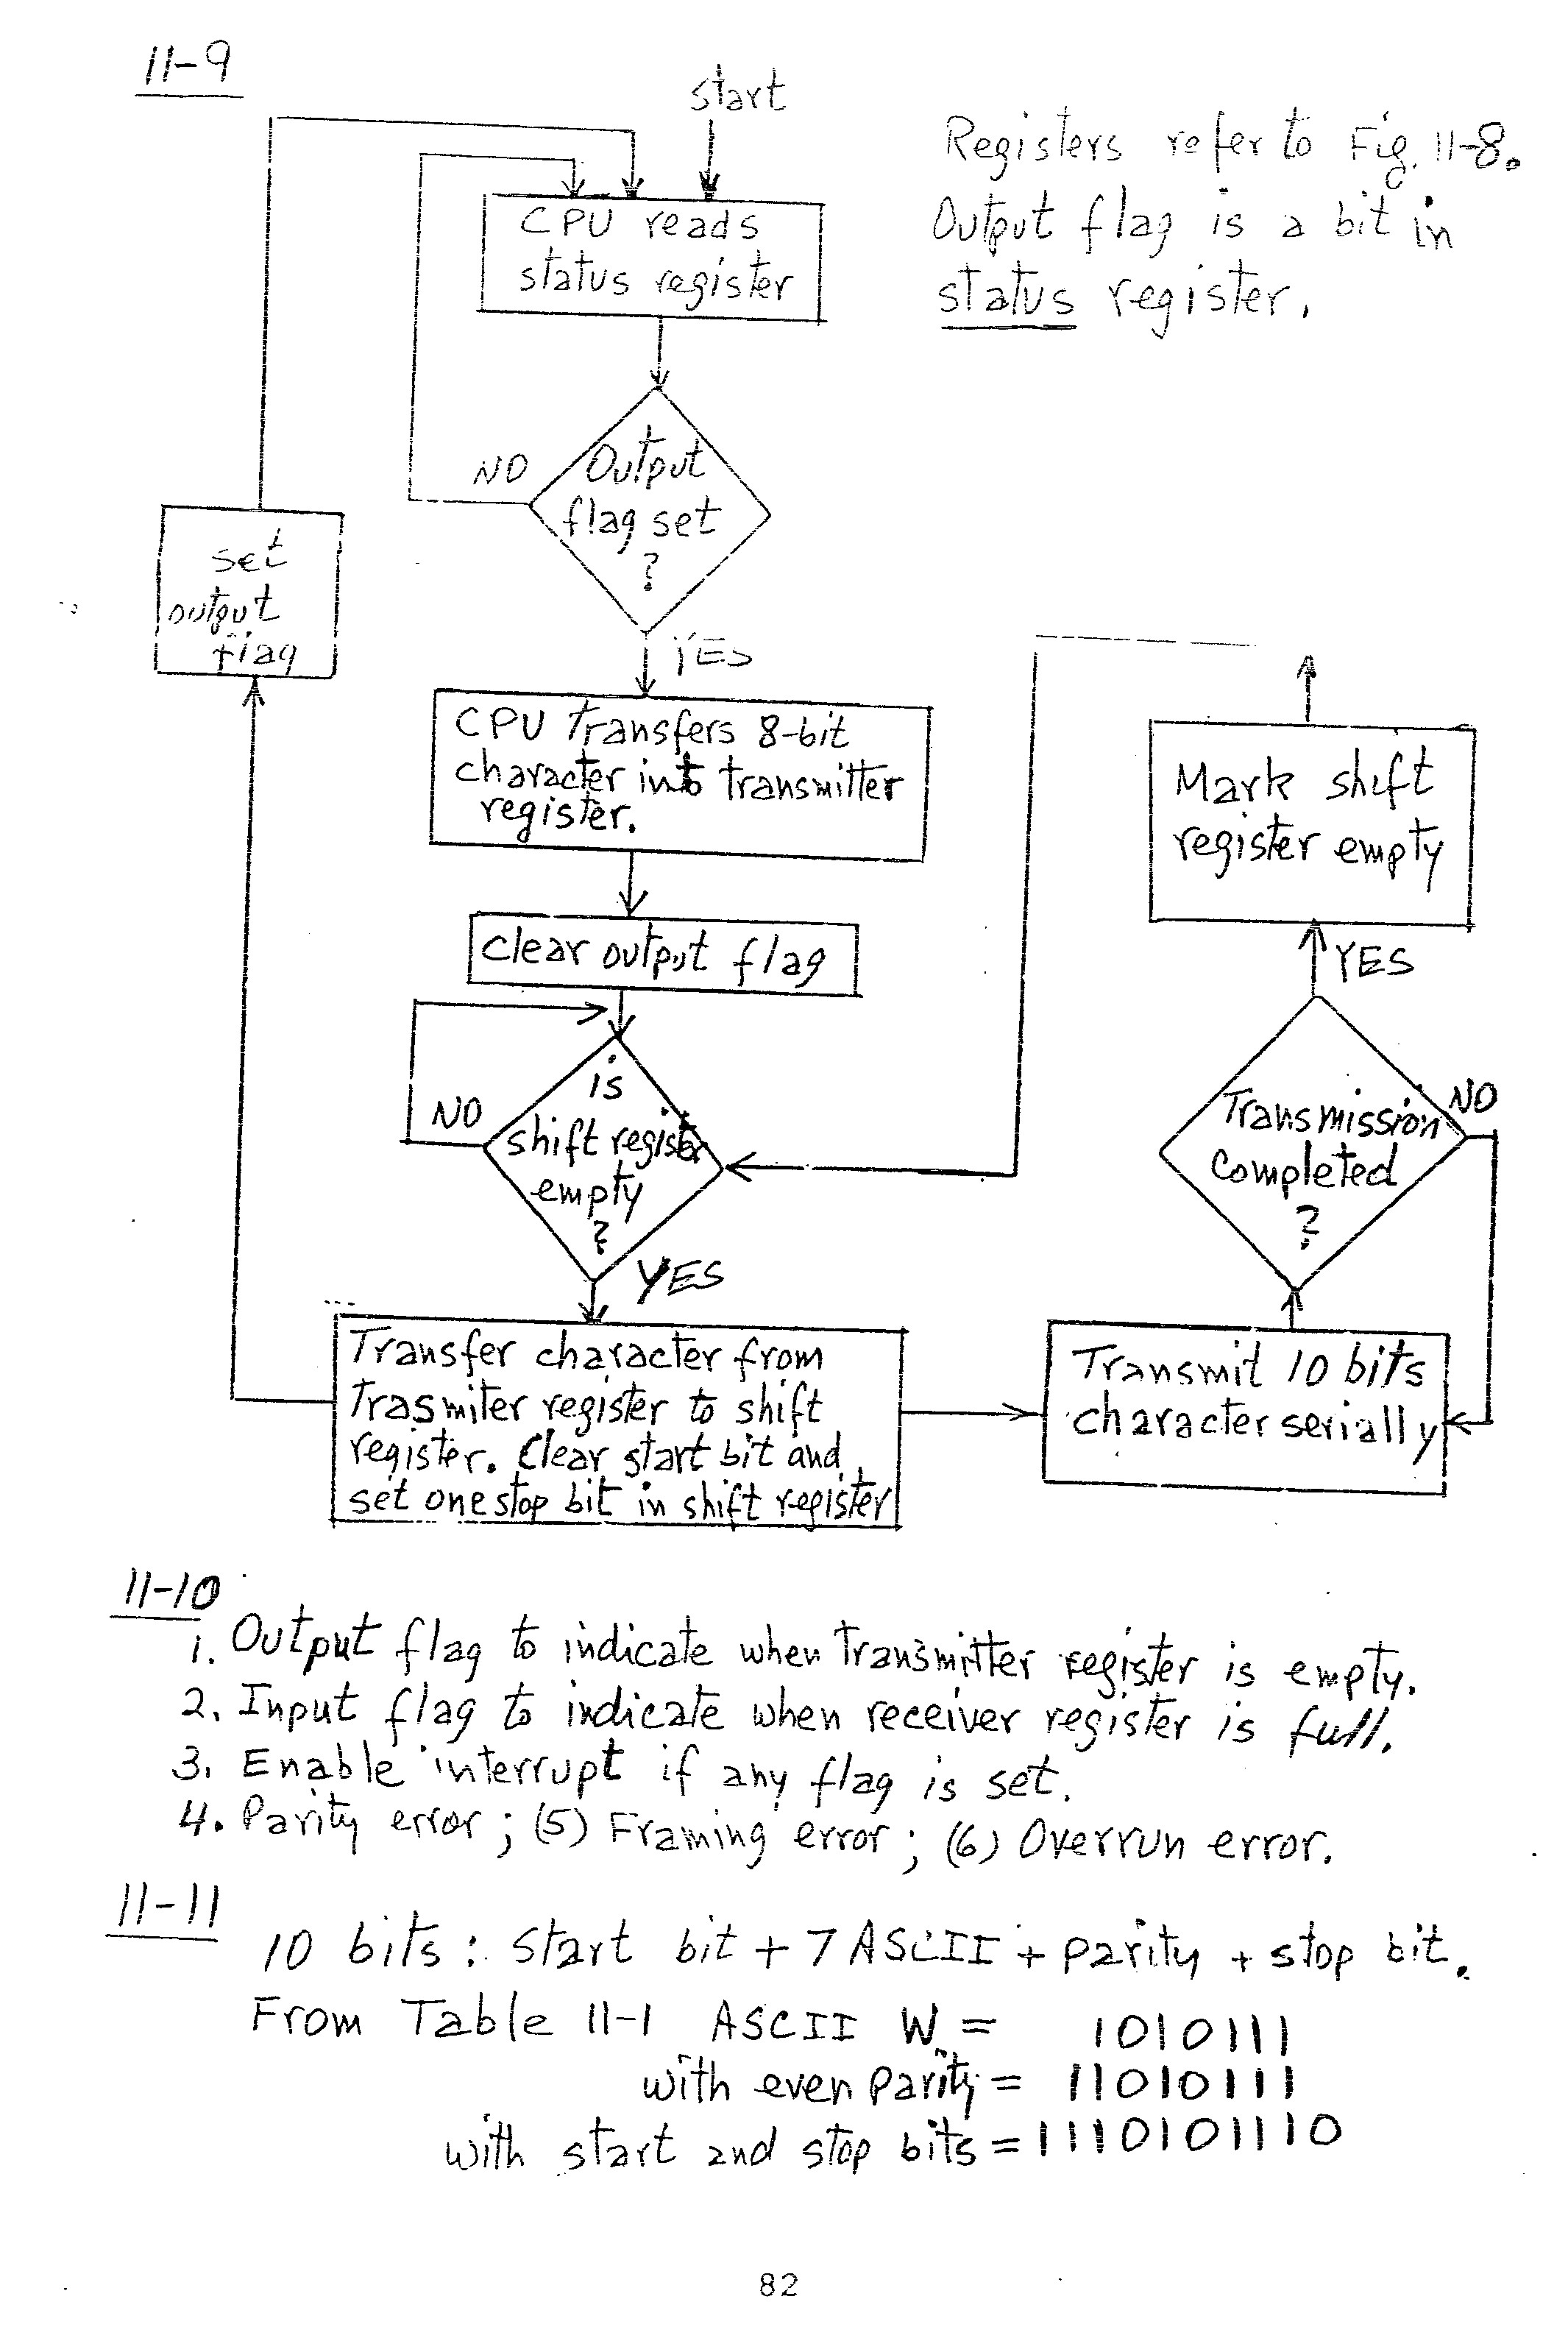 11-9
start
Registers refer to Fig. 11-8.
Output flag is a bit in
status register.
CPU reads
status register
NO
Output
flag set
?
YES
set
output
flag
CPU Transfers 8-bit
character into transmitter
register.
Clear output flag
NO
is
shift register
empty
?
YES
Mark shift
register empty
YES
Transmission
Completed
?
NO
Transfer character from
Trasmiter register to shift
register. Clear start bit and
set one stop bit in shift register
Transmit 10 bits
character serially
11-10
1. Output flag to indicate when transmitter register is empty.
2. Input flag to indicate when receiver register is full.
3. Enable interrupt if any flag is set.
4. Parity error; (5) Framing error; (6) Overrun error.
11-11
10 bits: Start bit + 7 ASCII + parity + stop bit.
From Table 11-1 ASCII W = 1010111
with even parity = 11010111
with start and stop bits = 1110101110
82